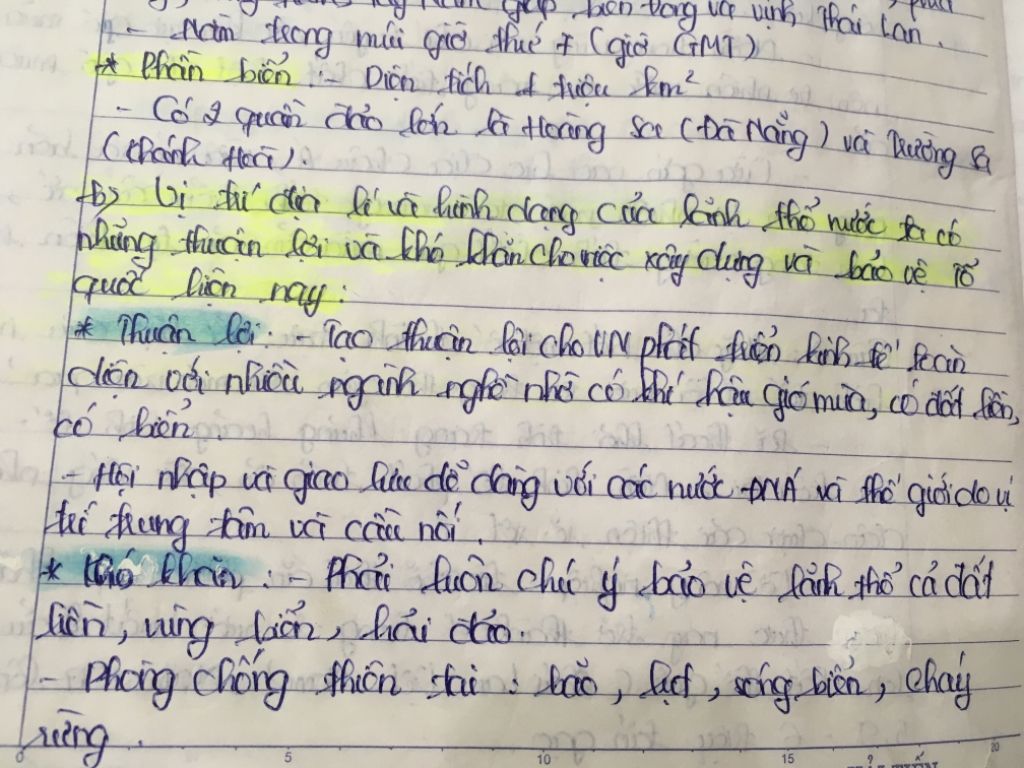 giáp biển Đông và vịnh Thái Lan.
- Nằm trong múi giờ thứ 7 (giờ GMT)
* Phần biển: - Diện tích 1 triệu km²
- Có 2 quần đảo lớn là Hoàng Sa (Đà Nẵng) và Trường Sa
(Khánh Hoà).
b) Vị trí địa lí và hình dạng của lãnh thổ nước ta có
những thuận lợi và khó khăn cho việc xây dựng và bảo vệ Tổ
quốc hiện nay:
* Thuận lợi: - Tạo thuận lợi cho VN phát triển kinh tế toàn
diện với nhiều ngành nghề nhờ có khí hậu gió mùa, có đất liền,
có biển.
- Hội nhập và giao lưu dễ dàng với các nước ĐNA và thế giới do vị
trí trung tâm và cầu nối.
* Khó khăn: - Phải luôn chú ý bảo vệ lãnh thổ cả đất
liền, vùng biển, hải đảo.
- Phòng chống thiên tai: bão, lụt, sóng biển, cháy
rừng.
0 5 10 15 20